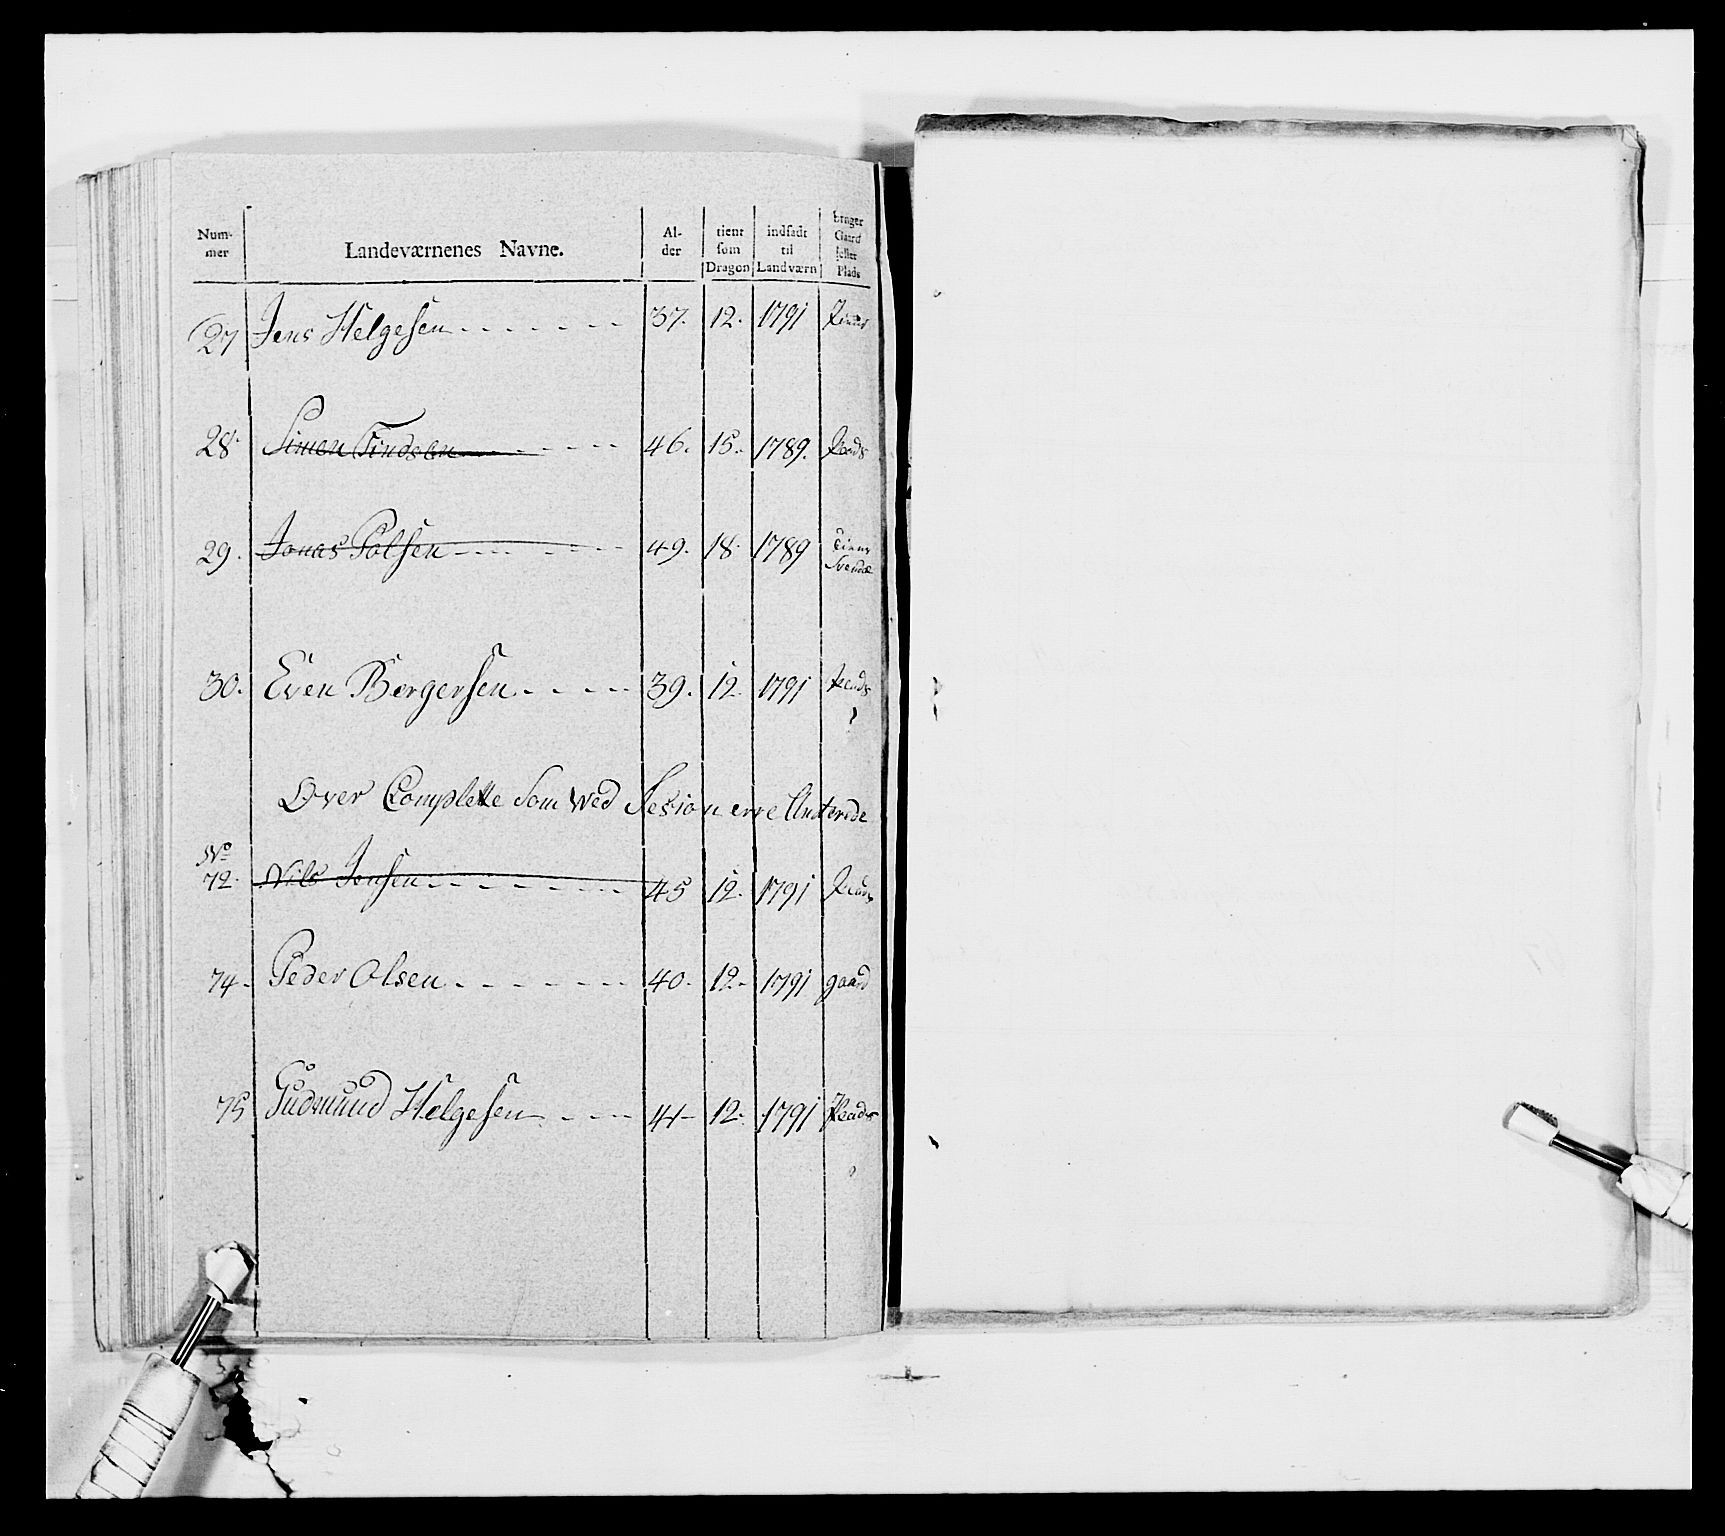 Num-
mer
Landeværnenes Navne.
Al-
der
tient
som
Dragon
indsadt
til
Landværn
bruger
Gaard
eller
Plads
27 Jens Helgesen 37. 12. 1791
28 Simen Findsen 46. 15. 1789. Plads
29. Jonas Polsen 49. 18. 1789
30. Even Borgersen 39. 12 1791 Plads
Over Complette Som wed Sesion erre
No
72. Nils Jensen 45 12. 1791 Plads
74. Peder Olsen 40. 12. 1791 gaard
75 Gudmund Helgesen 41 12. 1791 Plads